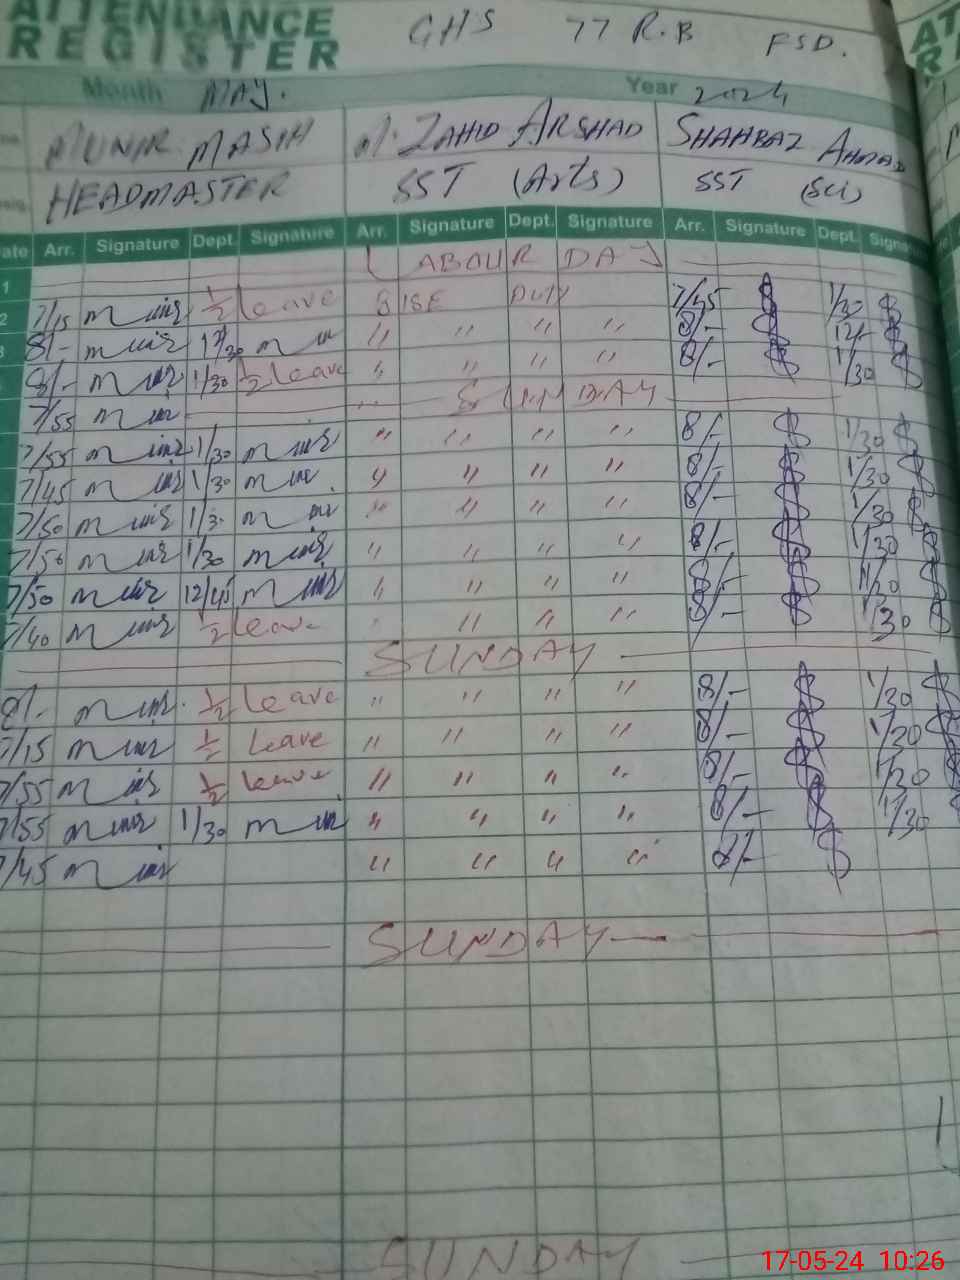 ATTENDANCE
REGISTER
GHS 77 R.B FSD.
Month MAY. Year 2024
MUNIR MASIH M. ZAHID ARSHAD SHAHBAZ AHMAD
HEADMASTER SST (Arts) SST (Sci)
ate Arr. Signature Dept. Signature Arr. Signature Dept. Signature Arr. Signature Dept. Signatu
1 LABOUR DAY
2 7/15 munir 1/2 leave BISE DUTY 7/45 1/30
8/- munir 12/30 " " " " 8/- 12/-
8/- munir 1/30 1/2 leave " " " " 8/- 1/30
7/55 munir SUNDAY
7/55 munir 1/30 munir " " " " 8/- 1/30
7/45 munir 1/30 munir " " " " 8/- 1/30
7/50 munir 1/3 munir " " " " 8/- 1/30
7/50 munir 1/30 munir " " " " 8/- 1/30
7/50 munir 12/45 munir " " " " 8/- 1/30
7/40 munir 1/2 leave " " " 8/- 1/30
SUNDAY
8/- munir 1/2 leave " " " " 8/- 1/30
7/15 munir 1/2 leave " " " " 8/- 1/30
7/55 munir 1/2 leave " " " " 8/- 1/30
7/55 munir 1/30 munir " " " " 8/- 1/30
7/45 munir " " " " 8/-
SUNDAY
SUNDAY
17-05-24 10:26